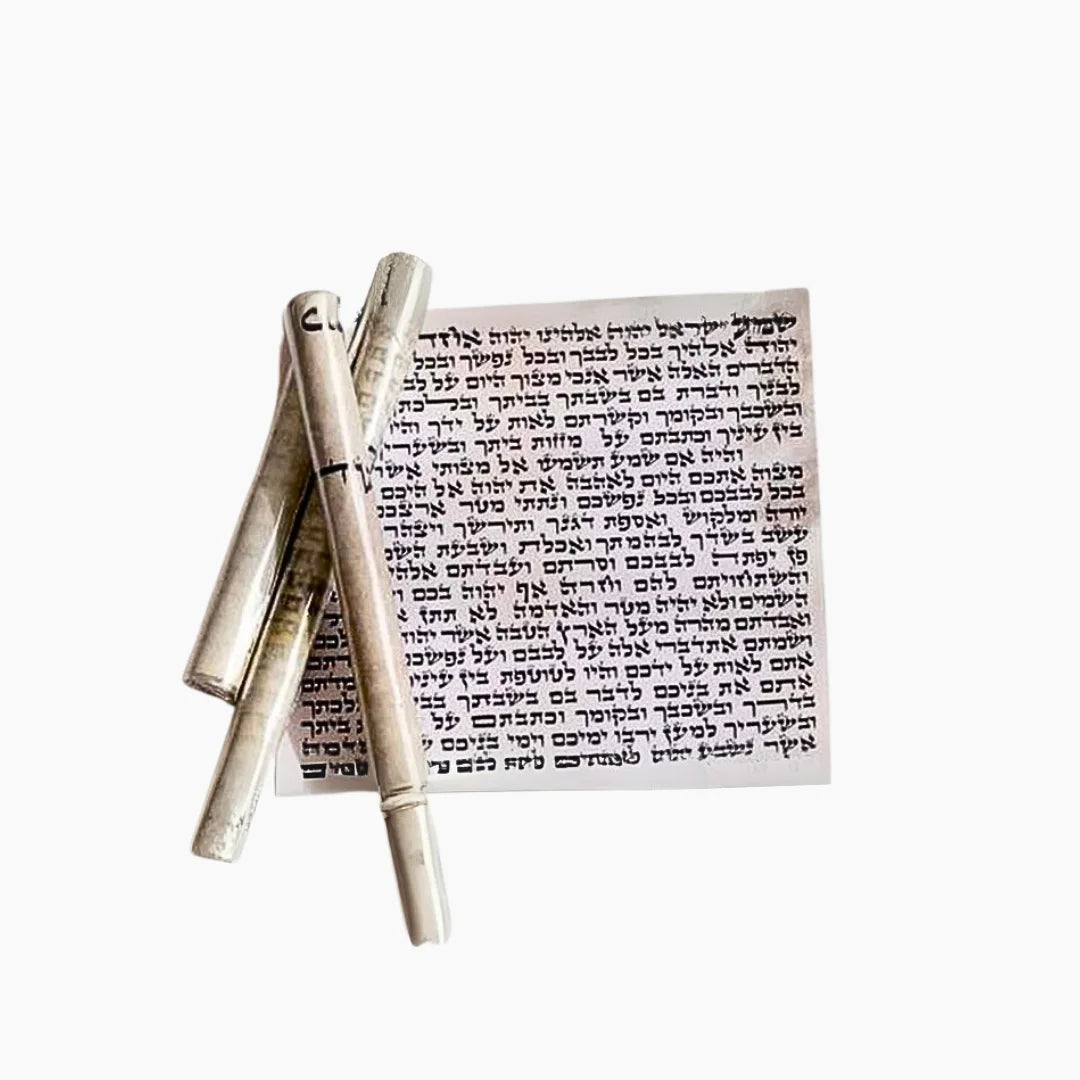 שמע ישראל יהוה אלהינו יהוה אחד
יהוה אלהיך בכל לבבך ובכל נפשך ובכל
הדברים האלה אשר אנכי מצוך היום על לב
לבניך ודברת בם בשבתך בביתך ובלכתך
ובשכבך ובקומך וקשרתם לאות על ידך והיו
בין עיניך וכתבתם על מזזות ביתך ובשעריך
והיה אם שמע תשמעו אל מצותי אשר
מצוה אתכם היום לאהבה את יהוה אלהיכם
בכל לבבכם ובכל נפשכם ונתתי מטר ארצכם
יורה ומלקוש ואספת דגנך ותירשך ויצהר
עשב בשדך לבהמתך ואכלת ושבעת השמ
פן יפתה לבבכם וסרתם ועבדתם אלהי
והשתחויתם להם וחרה אף יהוה בכם ו
השמים ולא יהיה מטר והאדמה לא תתן א
ואבדתם מהרה מעל הארץ הטבה אשר יהוה
ושמתם את דברי אלה על לבבכם ועל נפשכם
אתם לאות על ידכם והיו לטוטפת בין עיניכם
אתם את בניכם לדבר בם בשבתך בבי לכתך
בדרך ובשכבך ובקומך וכתבתם על ביתך
ובשעריך למען ירבו ימיכם וימי בניכם האדמה
אשר נשבע יהוה להם